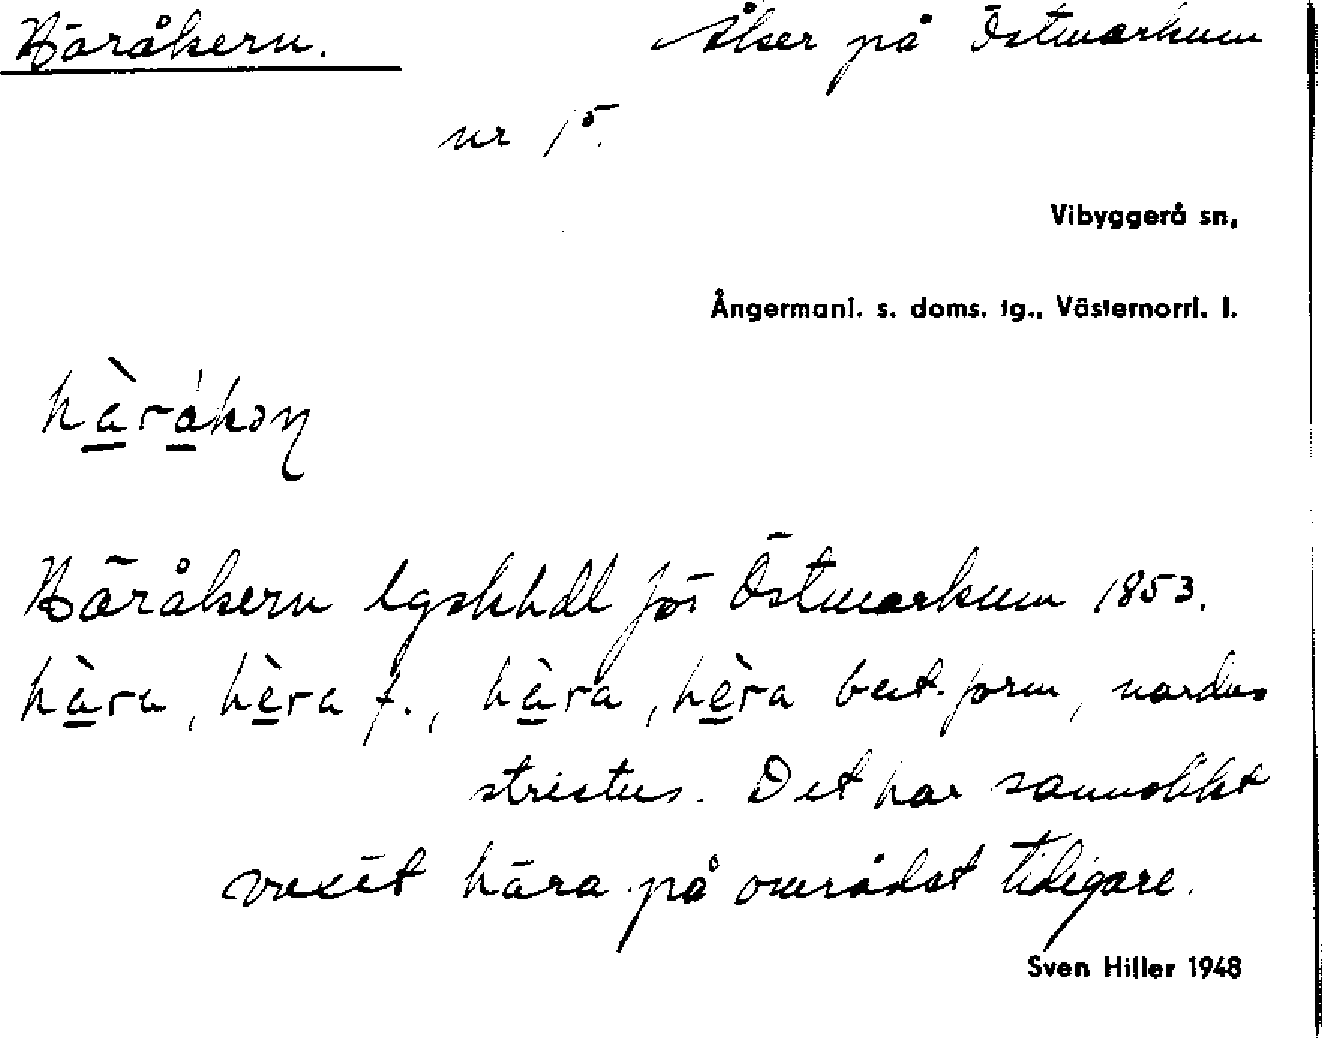 Häråkern. Åker på Östmarkum
nr 15.
Vibyggerå sn,
Ångermanl. s. doms. tg., Västernorrl. l.
hàråkəɳ
Häråkern lgskhdl för Östmarkum 1853.
hàra, hèra f., hàra, hèra best. form, nardus
strictus. Det har sannolikt
växet hära på området tidigare.
Sven Hiller 1948